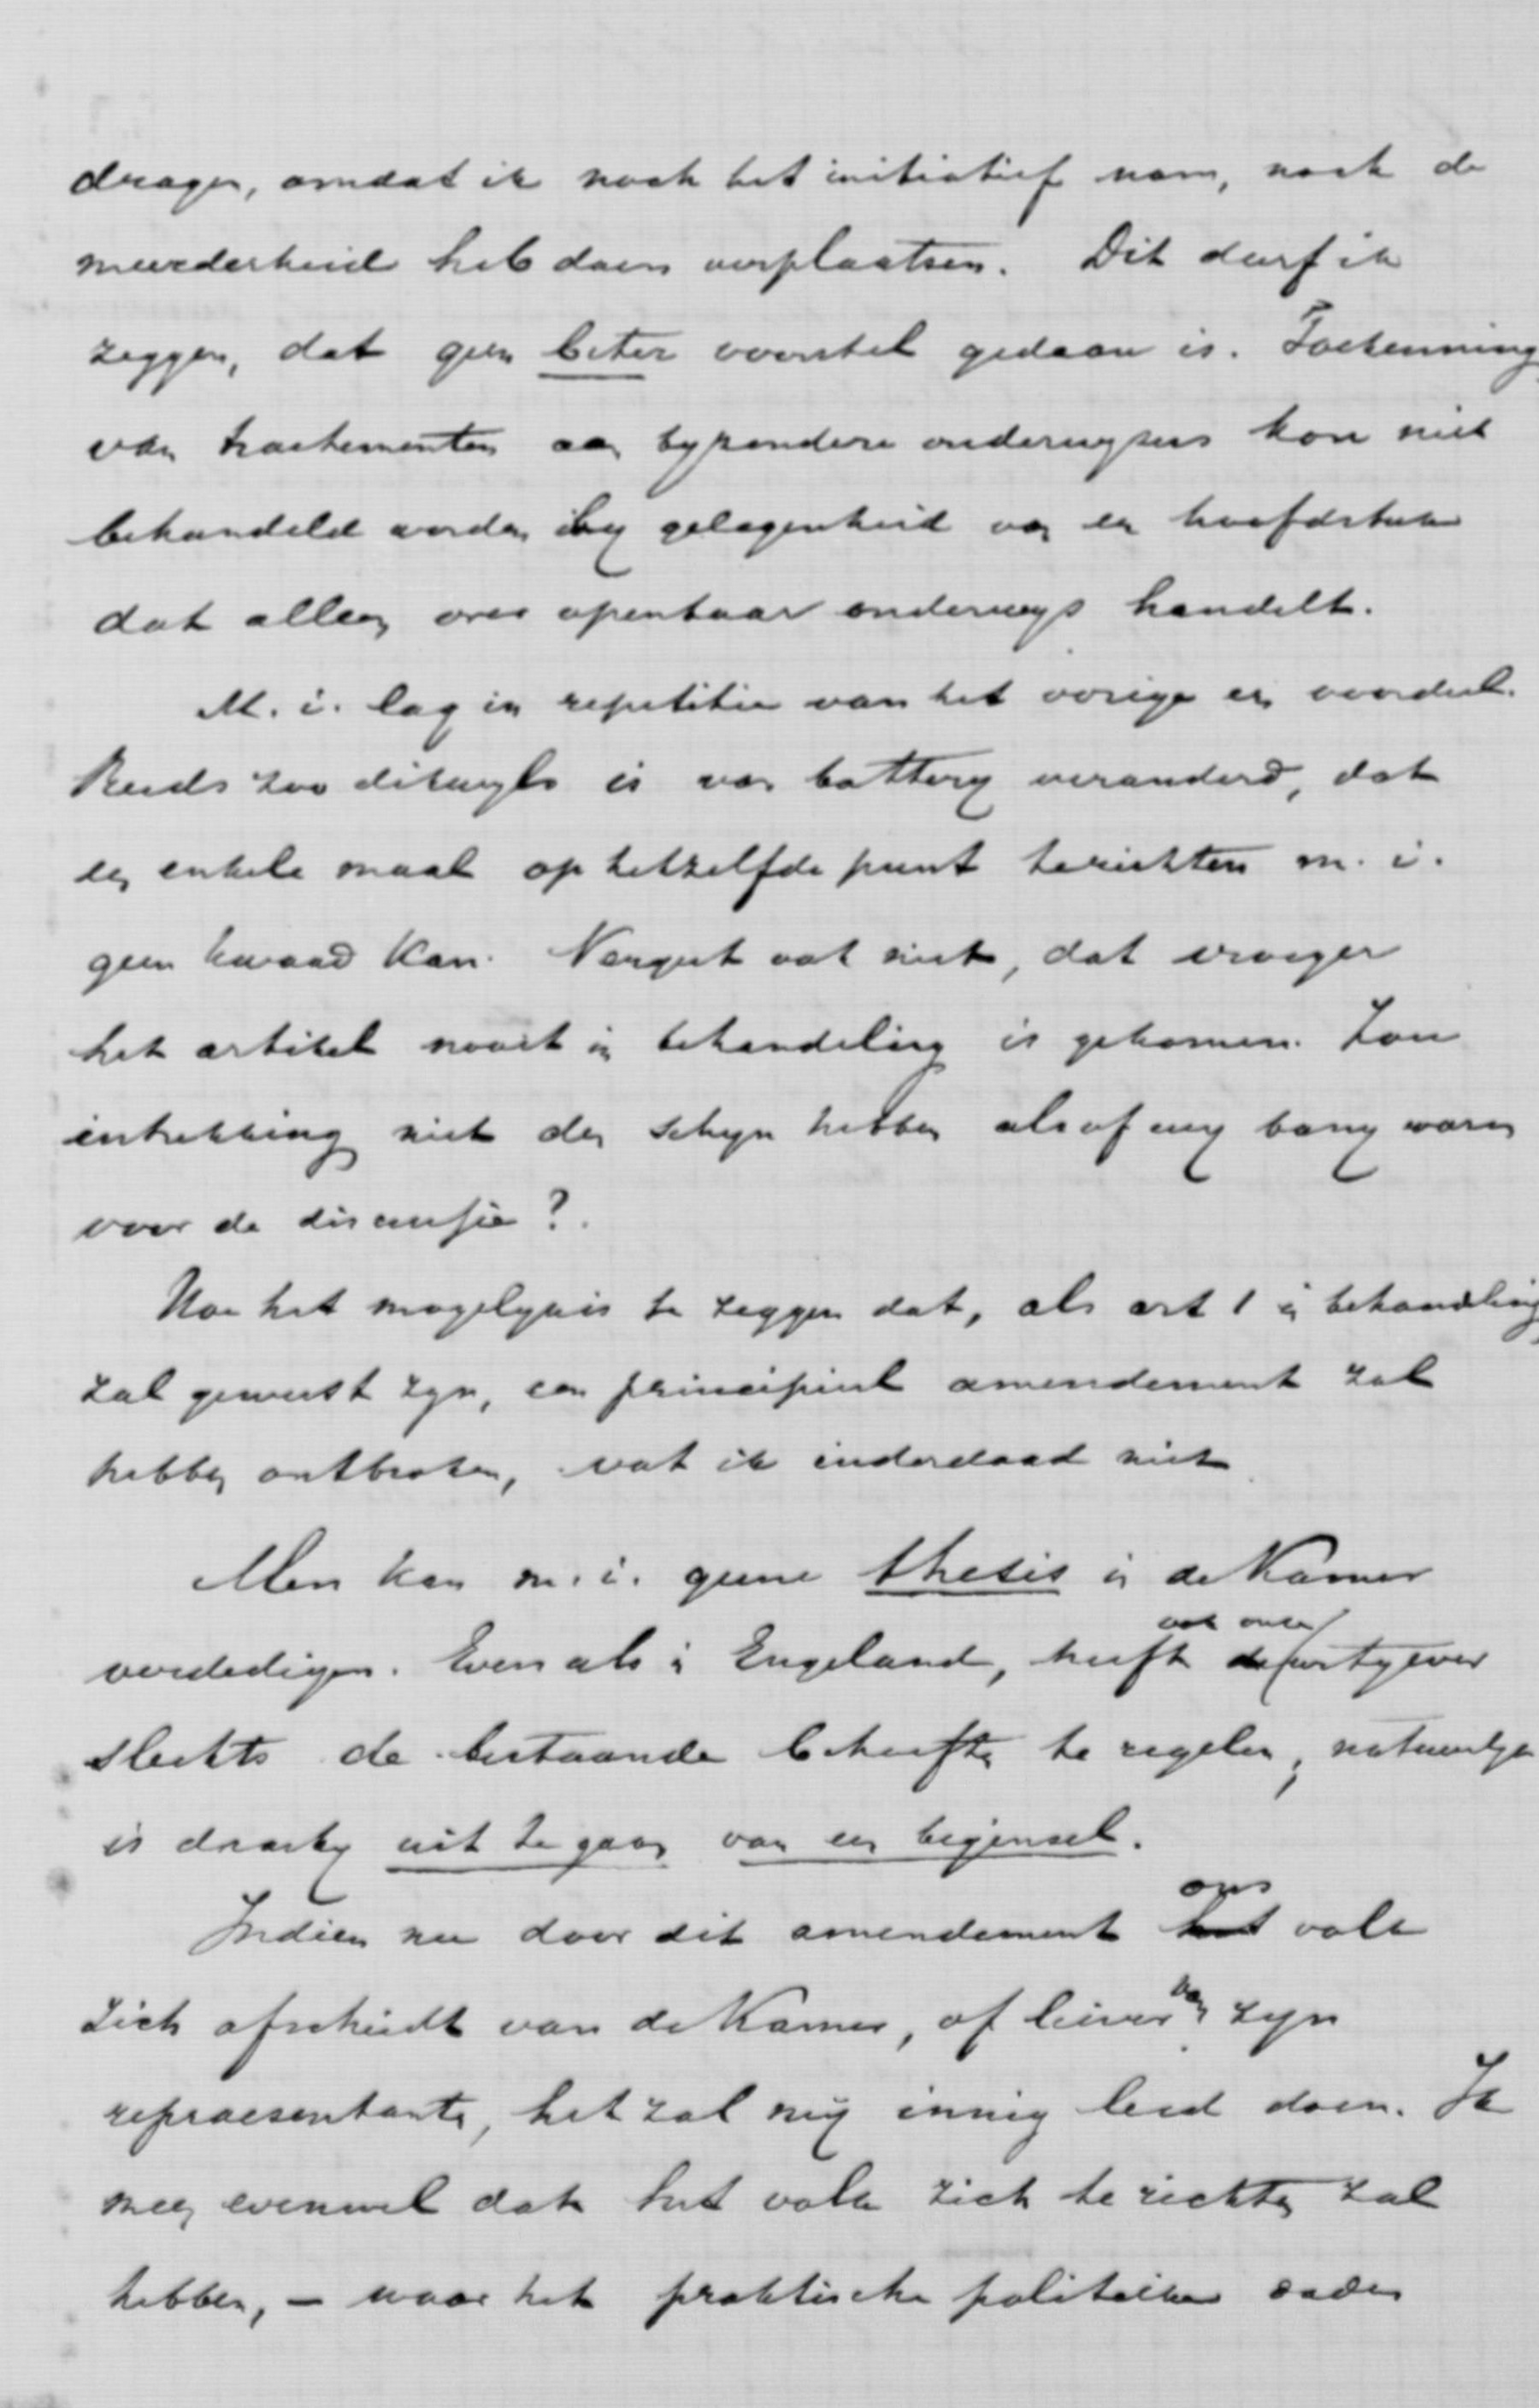 dragen, omdat ik noch het initiatief nam, noch de
meerderheid heb doen verplaatsen. Dit durf ik
zeggen, dat geen beter voorstel gedaan is. Toekenning
van tractementen aan byzondere onderwyzers kon niet
behandeld worden by gelegenheid van een hoofdstuk
dat alleen over openbaar onderwys handelt.
M. i. lag in repetitie van het vorige een voordeel.
Reeds zoo dikwyls is van battery veranderd, dat
een enkele maal op hetzelfde punt te richten m. i.
geen kwaad kan. Vergeet ook niet, dat vroeger
het artikel nooit in behandeling is gekomen. Zou
intrekking niet den schyn hebben alsof wy bang waren
voor de discussie?
Hoe het mogelyk is te zeggen dat, als art 1 in behandeling
zal geweest zyn, een principieel amendement zal
hebben ontbroken, vat ik inderdaad niet
Men kan m. i. geene thesis in de Kamer
verdedigen. Evenals in Engeland, heeft ook onze wetgever
slechts de bestaande behoeften te regelen; natuurlyk
is daarby uit te gaan van een beginsel.
Indien nu door dit amendement ons volk
zich afscheidt van de Kamer, of liever van zyn
repraesentanten, het zal my innig leed doen. Ik
meen evenwel dat het volk zich te richten zal
hebben, – waar het praktische politieke daden